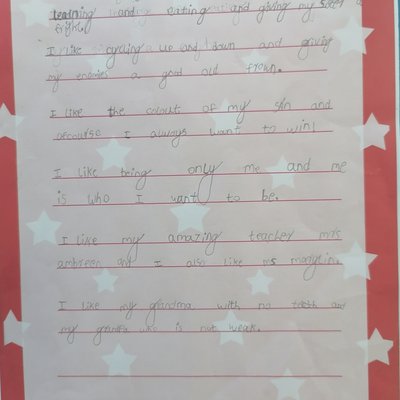 and eating and giving my sister a
fright.
I like cycling up and down and giving
my enemies a good old frown.
I like the colour of my skin and
ofcourse I always want to win!
I like being only me and me
is who I want to be.
I like my amazing teacher mrs
ambreen and I also like ms
I like my grandma with no teeth and
my grandpa who is not weak.